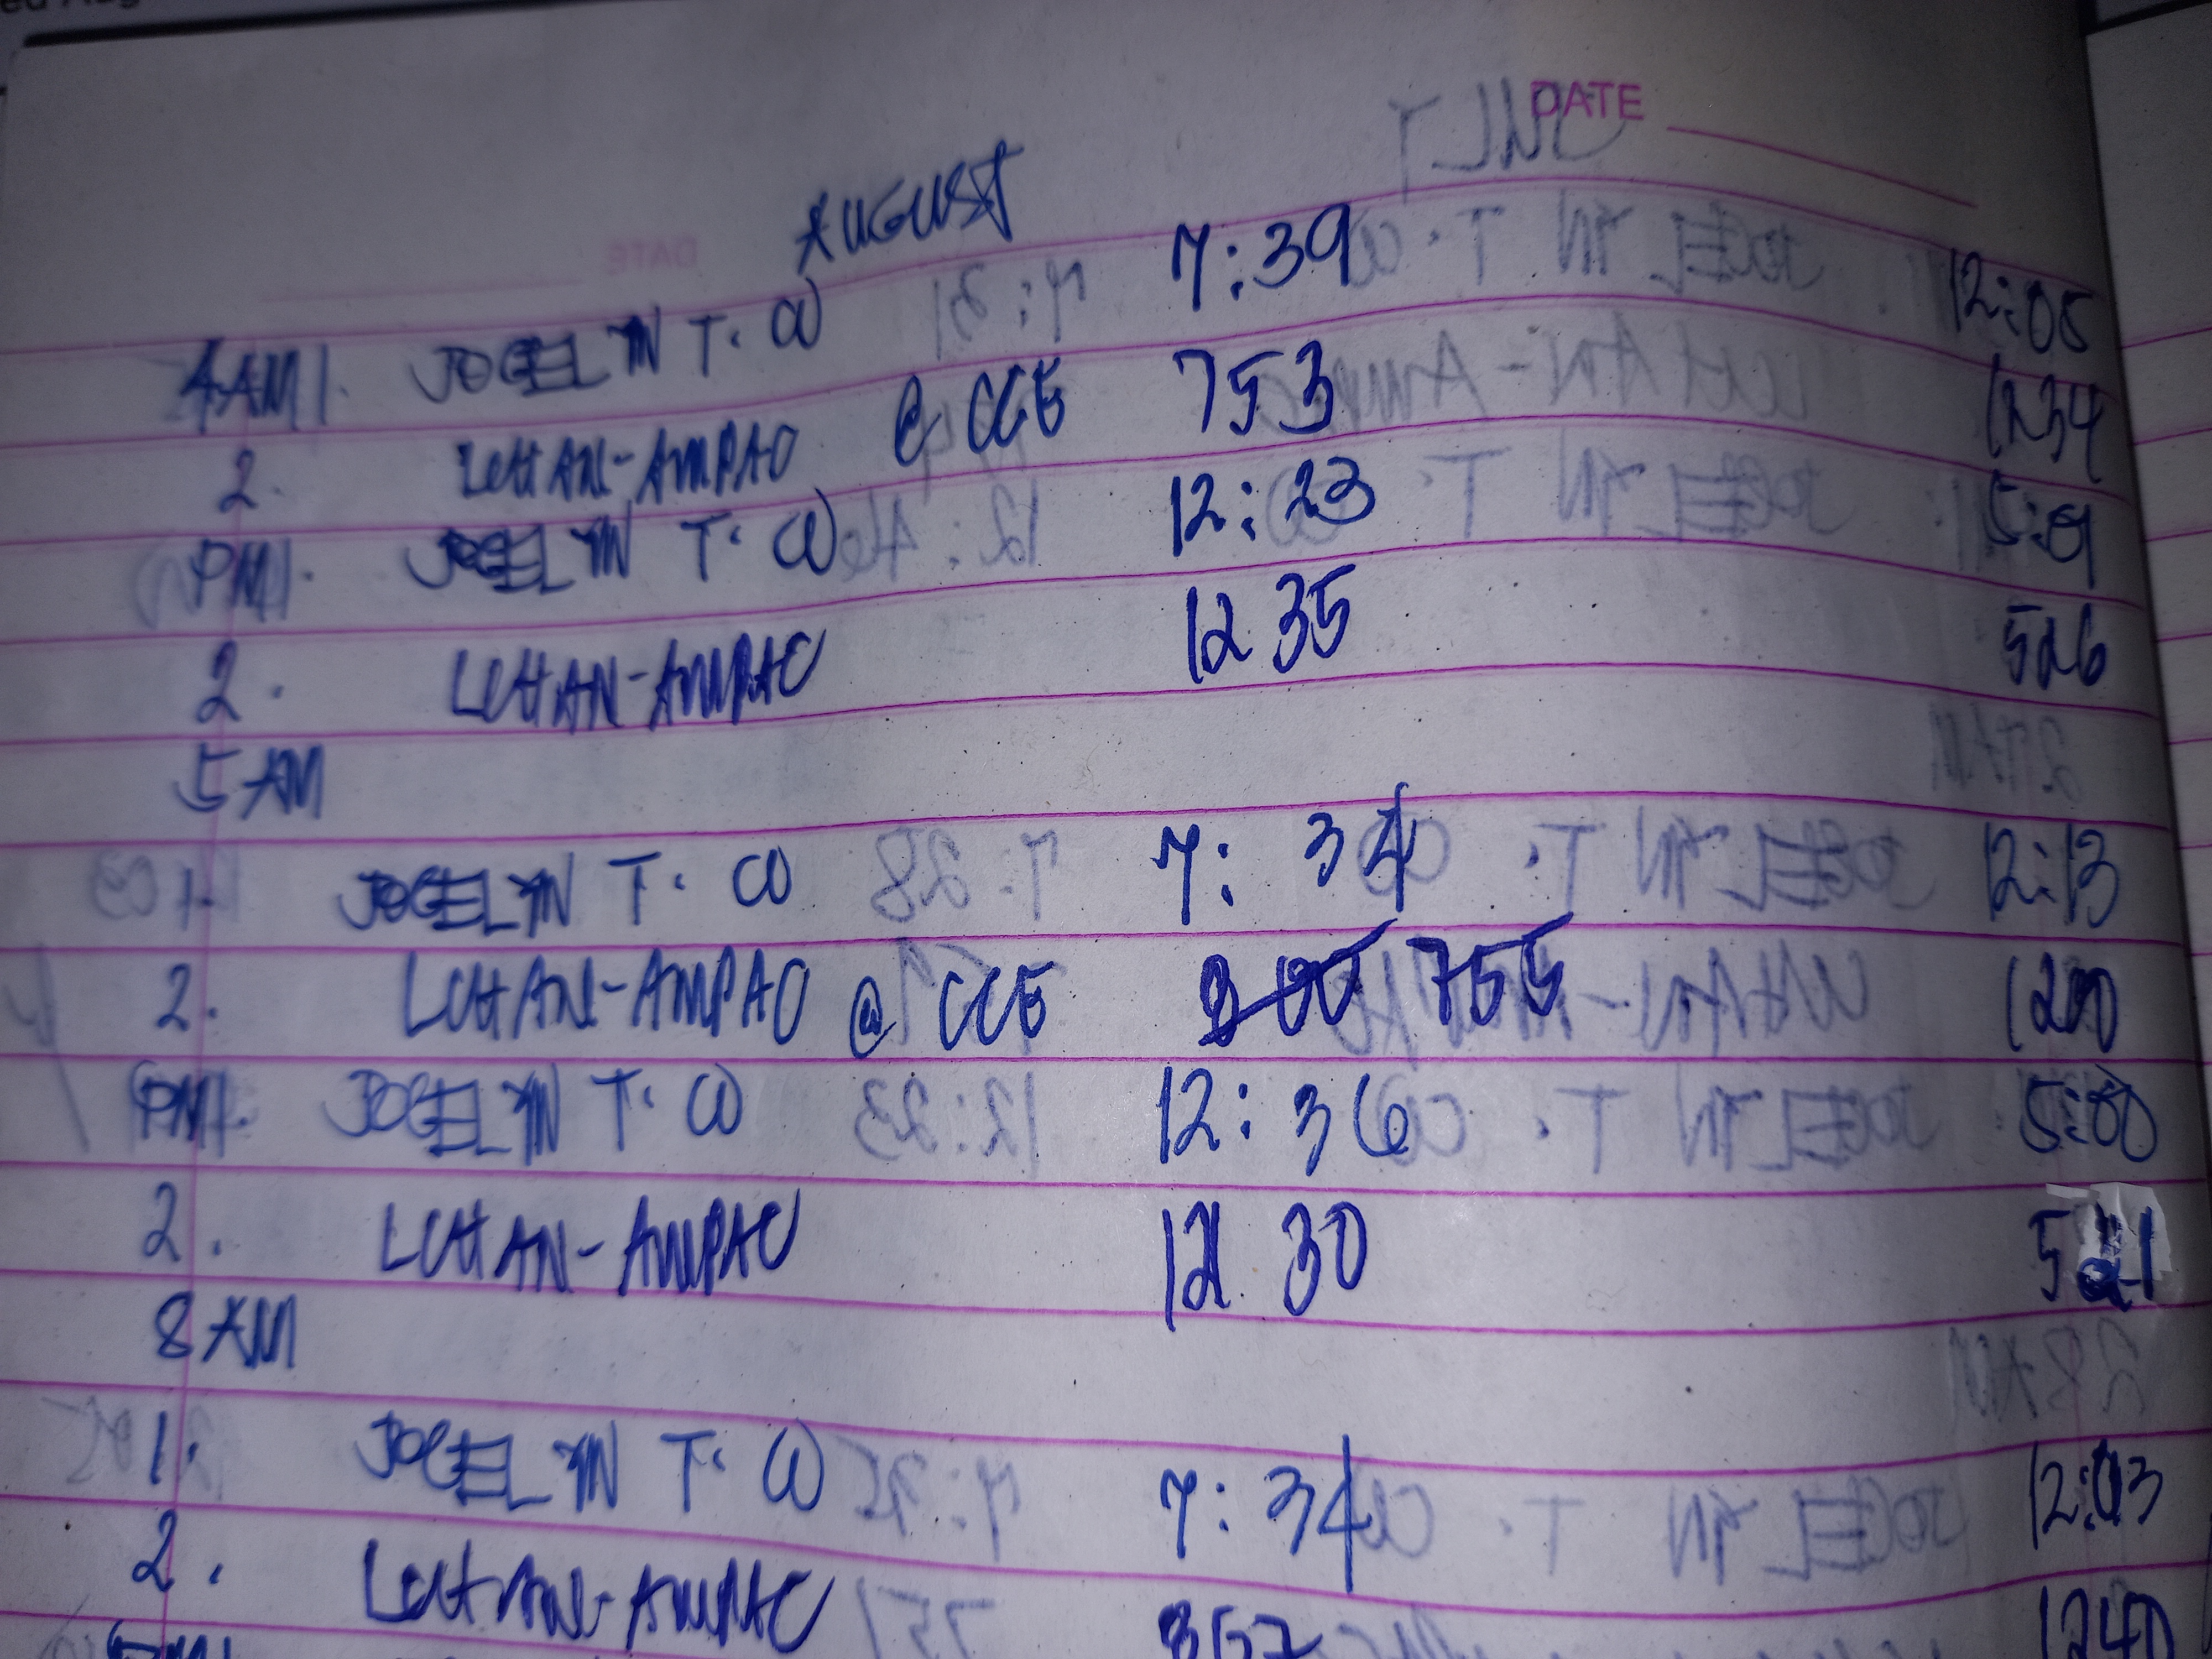 DATE
AUGUST
4 AM 1. JOCELYN T. CO 7:39 12:05
2. LCHAN-AMPAO @ CCE 753 1234
PM 1. JOCELYN T. CO 12:23 5:01
2. LCHAN-AMPAO 12 35 526
5 AM
1. JOCELYN T. CO 7:34 12:13
2. LCHAN-AMPAO @ CCE 755
PM 1. JOCELYN T. CO 12:36 5:00
2. LCHAN-AMPAO 12 30 521
8 AM
1. JOCELYN T. CO 7:34 12:03
2. LCHAN-AMPAO 1240